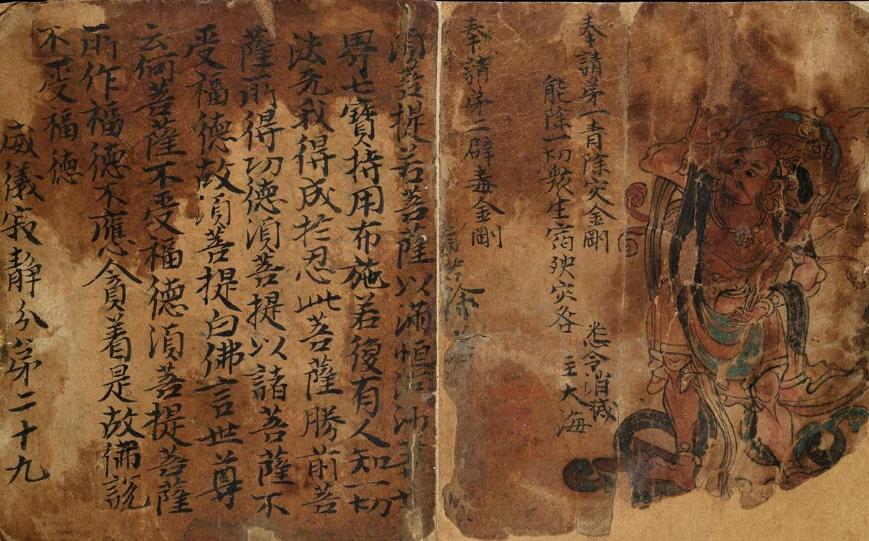 奉請第一青除灾金剛
能除一切衆生宿殃灾咎
悉令消滅
主大海
奉請第二辟毒金剛
除
須菩提若菩薩以滿恒河沙等世
界七寶持用布施若復有人知一切
法无我得成於忍此菩薩勝前菩
薩所得功德須菩提以諸菩薩不
受福德故須菩提白佛言世尊
云何菩薩不受福德須菩提菩薩
所作福德不應貪着是故佛說
不受福德
威儀寂靜分第二十九